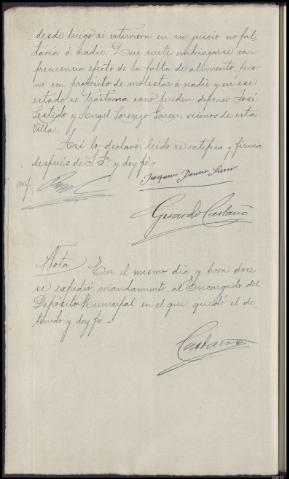 desde luego si estuviera en su juicio no fal
taria á nadie. Que suele embriagarse con
frecuencia efecto de la falta de alimento, pero
no con propósito de molestar á nadie y en ese
estado se trastorna como pueden deponer José
y Angel Lorenzo Garcia, vecinos de esta
Villa.
Así lo declaró, leido se ratifica y firma
despues de S. Sª. y doy fé.
Gerardo Castaño
Nota En el mismo dia y hora doce
se expidió mandamiento al Encargado del
Depósito Municipal en el que quedó el de
tenido y doy fé.
Castaño